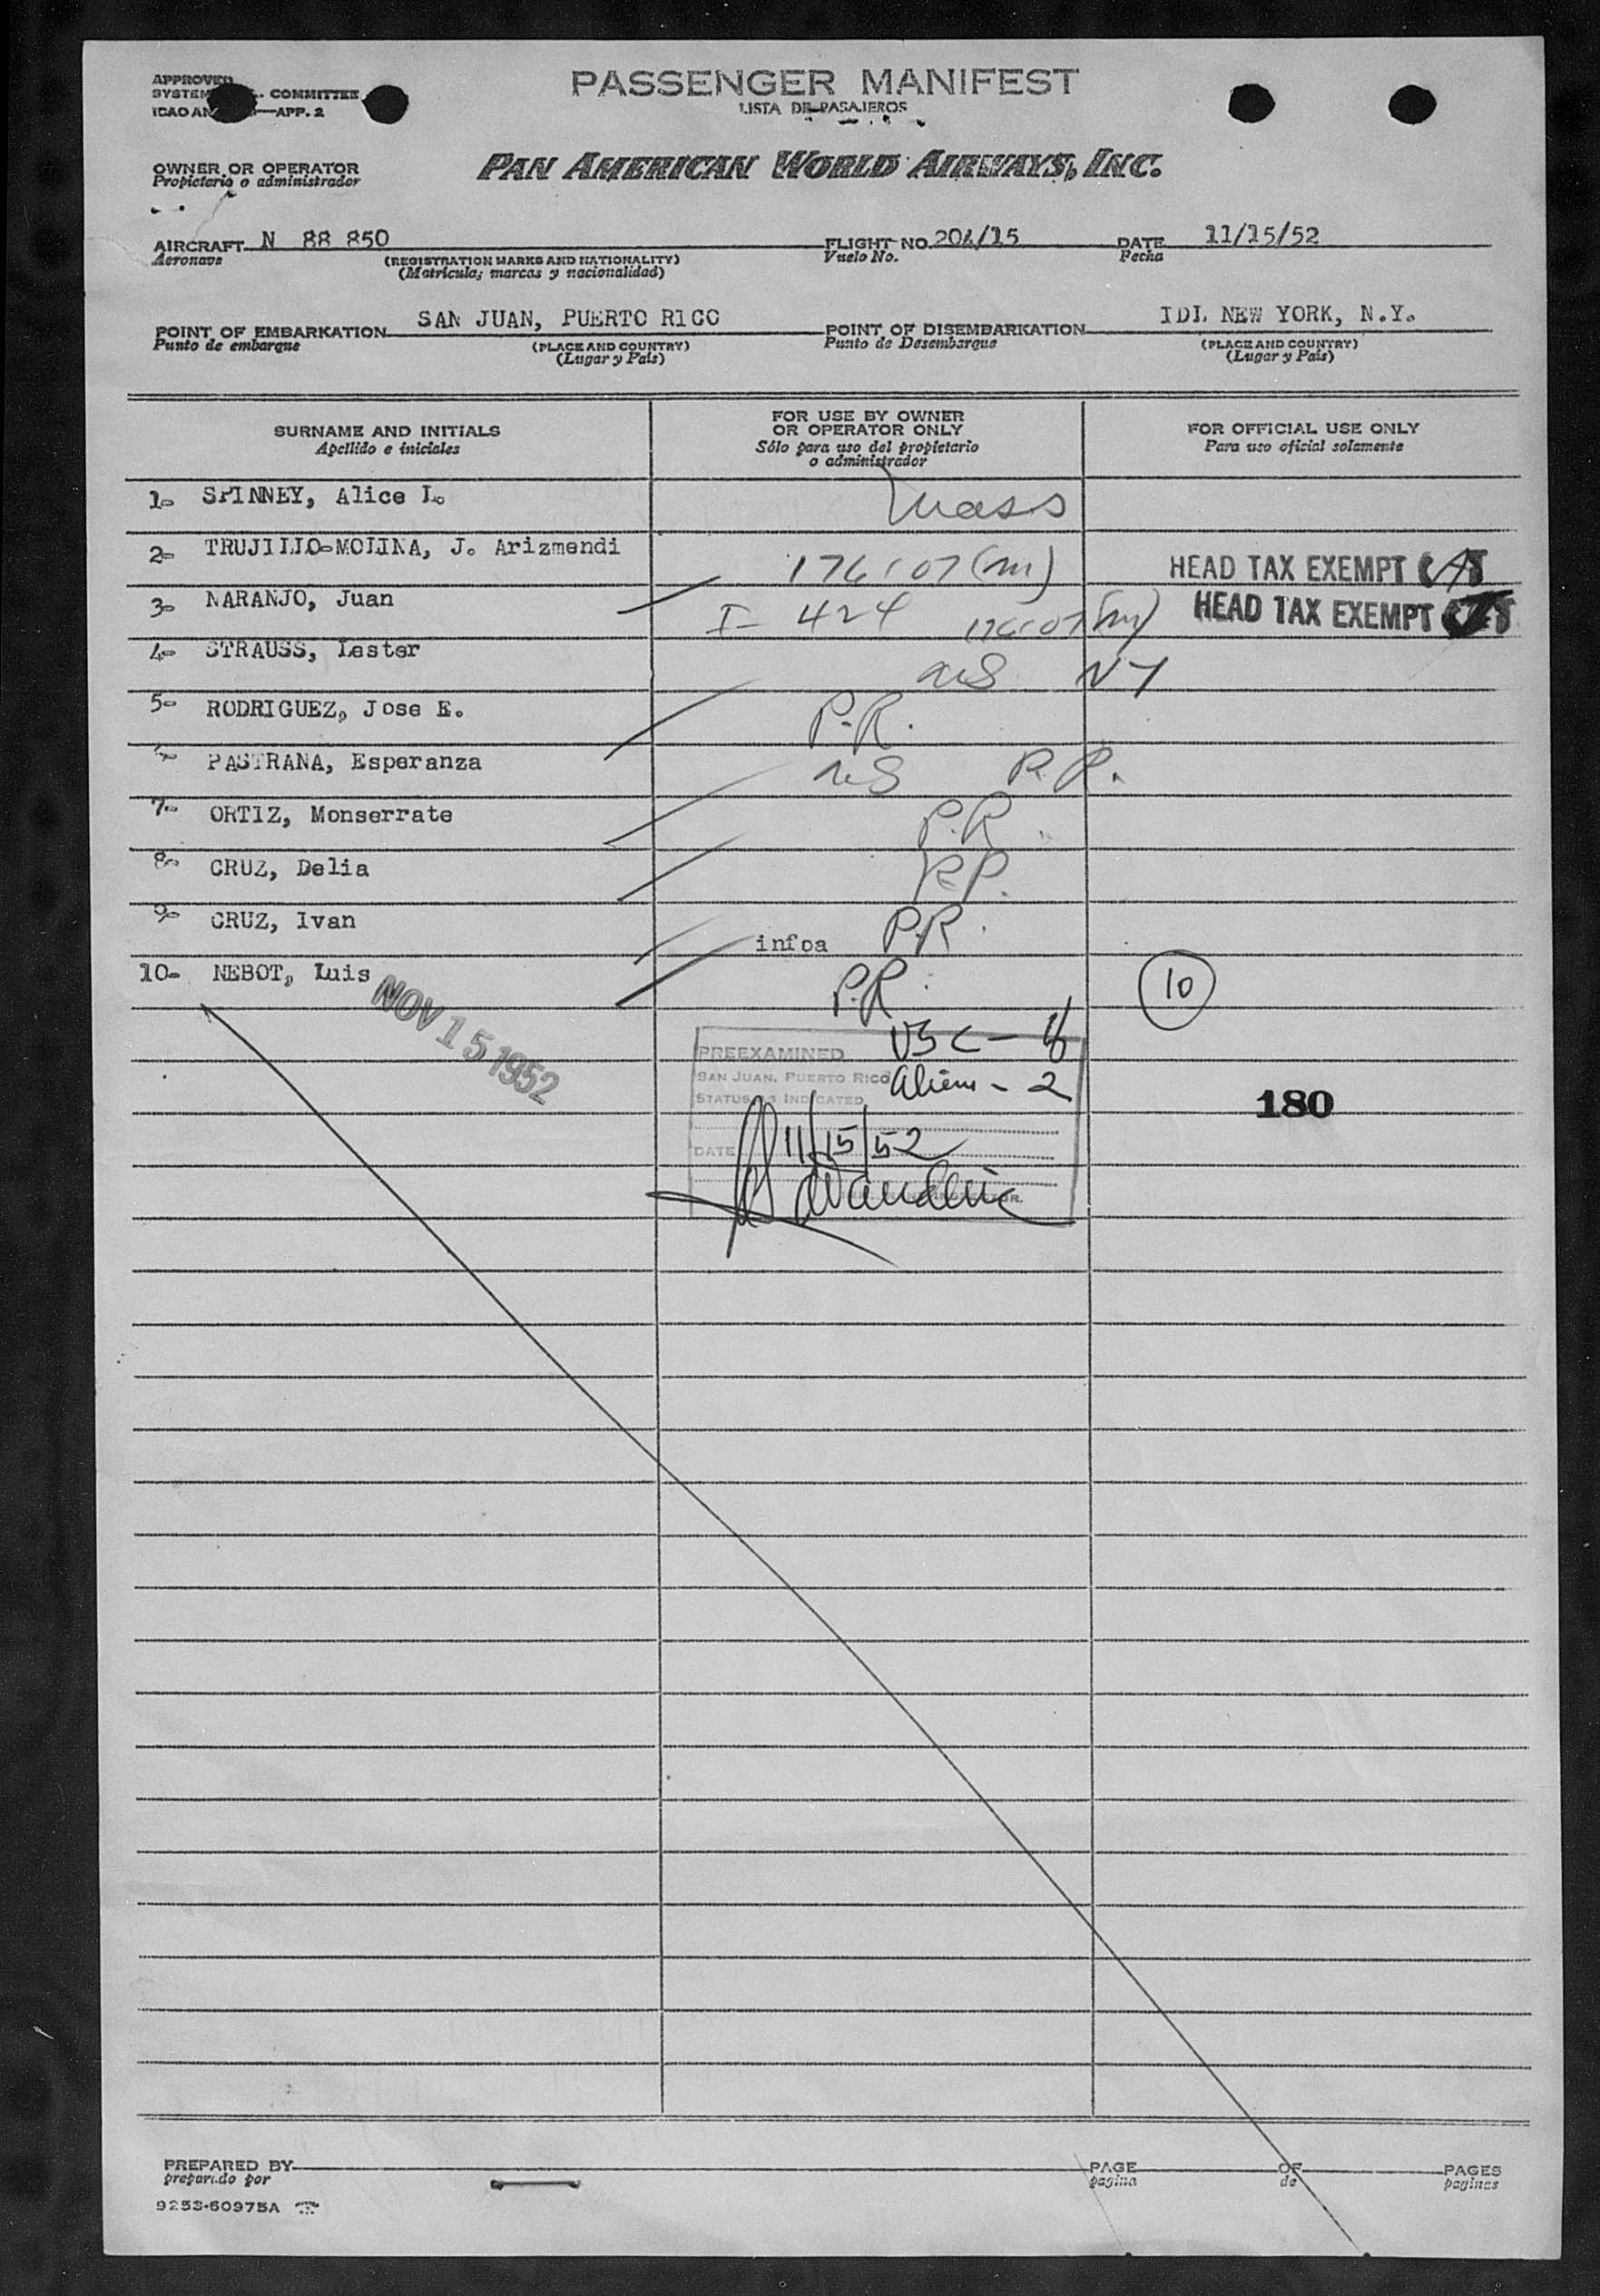 APPROVED
SYSTEM COMMITTEE
ICAO AN —APP. 2
PASSENGER MANIFEST
LISTA DE PASAJEROS
OWNER OR OPERATOR
Propietario o administrador
PAN AMERICAN WORLD AIRWAYS, INC.
AIRCRAFT N 88 850 FLIGHT NO. 204/15 DATE 11/15/52
Aeronave (REGISTRATION MARKS AND NATIONALITY) Vuelo No. Fecha
(Matrícula; marcas y nacionalidad)
POINT OF EMBARKATION SAN JUAN, PUERTO RICO POINT OF DISEMBARKATION IDL NEW YORK, N.Y.
Punto de embarque (PLACE AND COUNTRY) Punto de Desembarque (PLACE AND COUNTRY)
(Lugar y País) (Lugar y País)
SURNAME AND INITIALS FOR USE BY OWNER OR OPERATOR ONLY FOR OFFICIAL USE ONLY
Apellido e iniciales Sólo para uso del propietario o administrador Para uso oficial solamente
1- SPINNEY, Alice L. Mass
2- TRUJILLO-MOLINA, J. Arizmendi 176.07(m) HEAD TAX EXEMPT
3- NARANJO, Juan I- 424 176.07(m) HEAD TAX EXEMPT
4- STRAUSS, Lester US NY
5- RODRIGUEZ, Jose E. P.R.
PASTRANA, Esperanza US P.R.
7- ORTIZ, Monserrate P.R.
8- CRUZ, Delia P.R.
9- CRUZ, Ivan infoa P.R.
10- NEBOT, Luis P.R. 10
NOV 15 1952
PREEXAMINED USC - 8
SAN JUAN, PUERTO RICO Aliens - 2
STATUS AS INDICATED
180
DATE 11/15/52
INSPECTOR.
PREPARED BY PAGE OF PAGES
preparado por pagina de paginas
9253-60975A